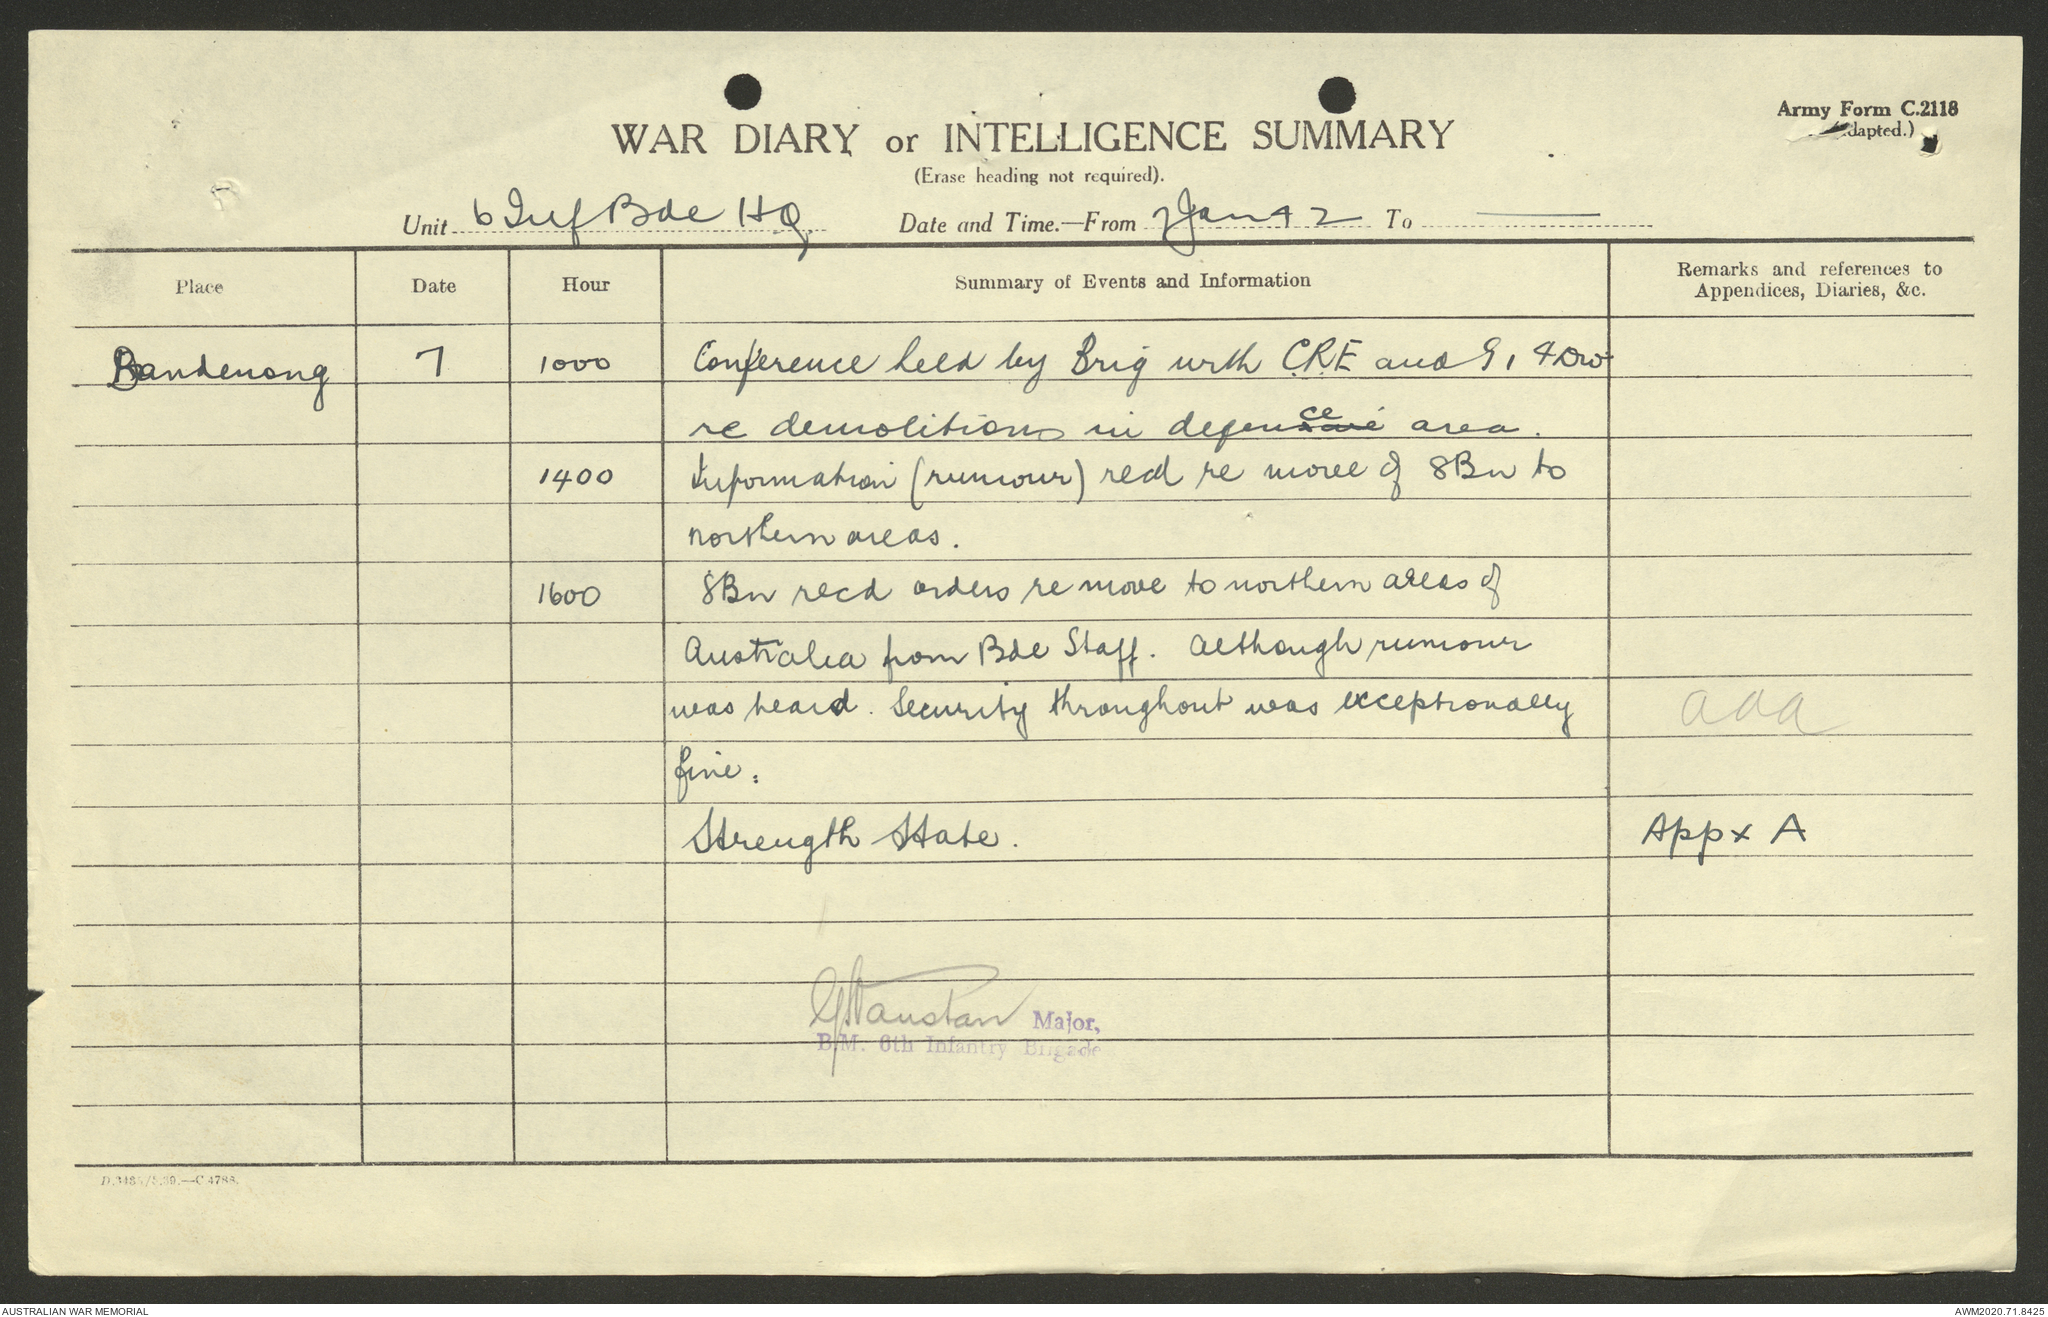 Army Form C.2118
(Adapted.)
WAR DIARY or INTELLIGENCE SUMMARY
(Erase heading not required).
Unit 6 Inf Bde HQ Date and Time.—From 7 Jan 42 To
Place Date Hour Summary of Events and Information Remarks and references to
Appendices, Diaries, &c.
Dandenong 7 1000 Conference held by Brig with C.R.E and G1 4 Div
re demolitions in defensive ce area.
1400 Information (rumour) recd re move of 8Bn to
northern areas.
1600 8Bn recd orders re move to northern areas of
Australia from Bde Staff. Although rumour
was heard. Security throughout was exceptionally
fine.
Strength State. Appx A
Major,
B.M. 6th Infantry Brigade
AUSTRALIAN WAR MEMORIAL
AWM2020.71.8425